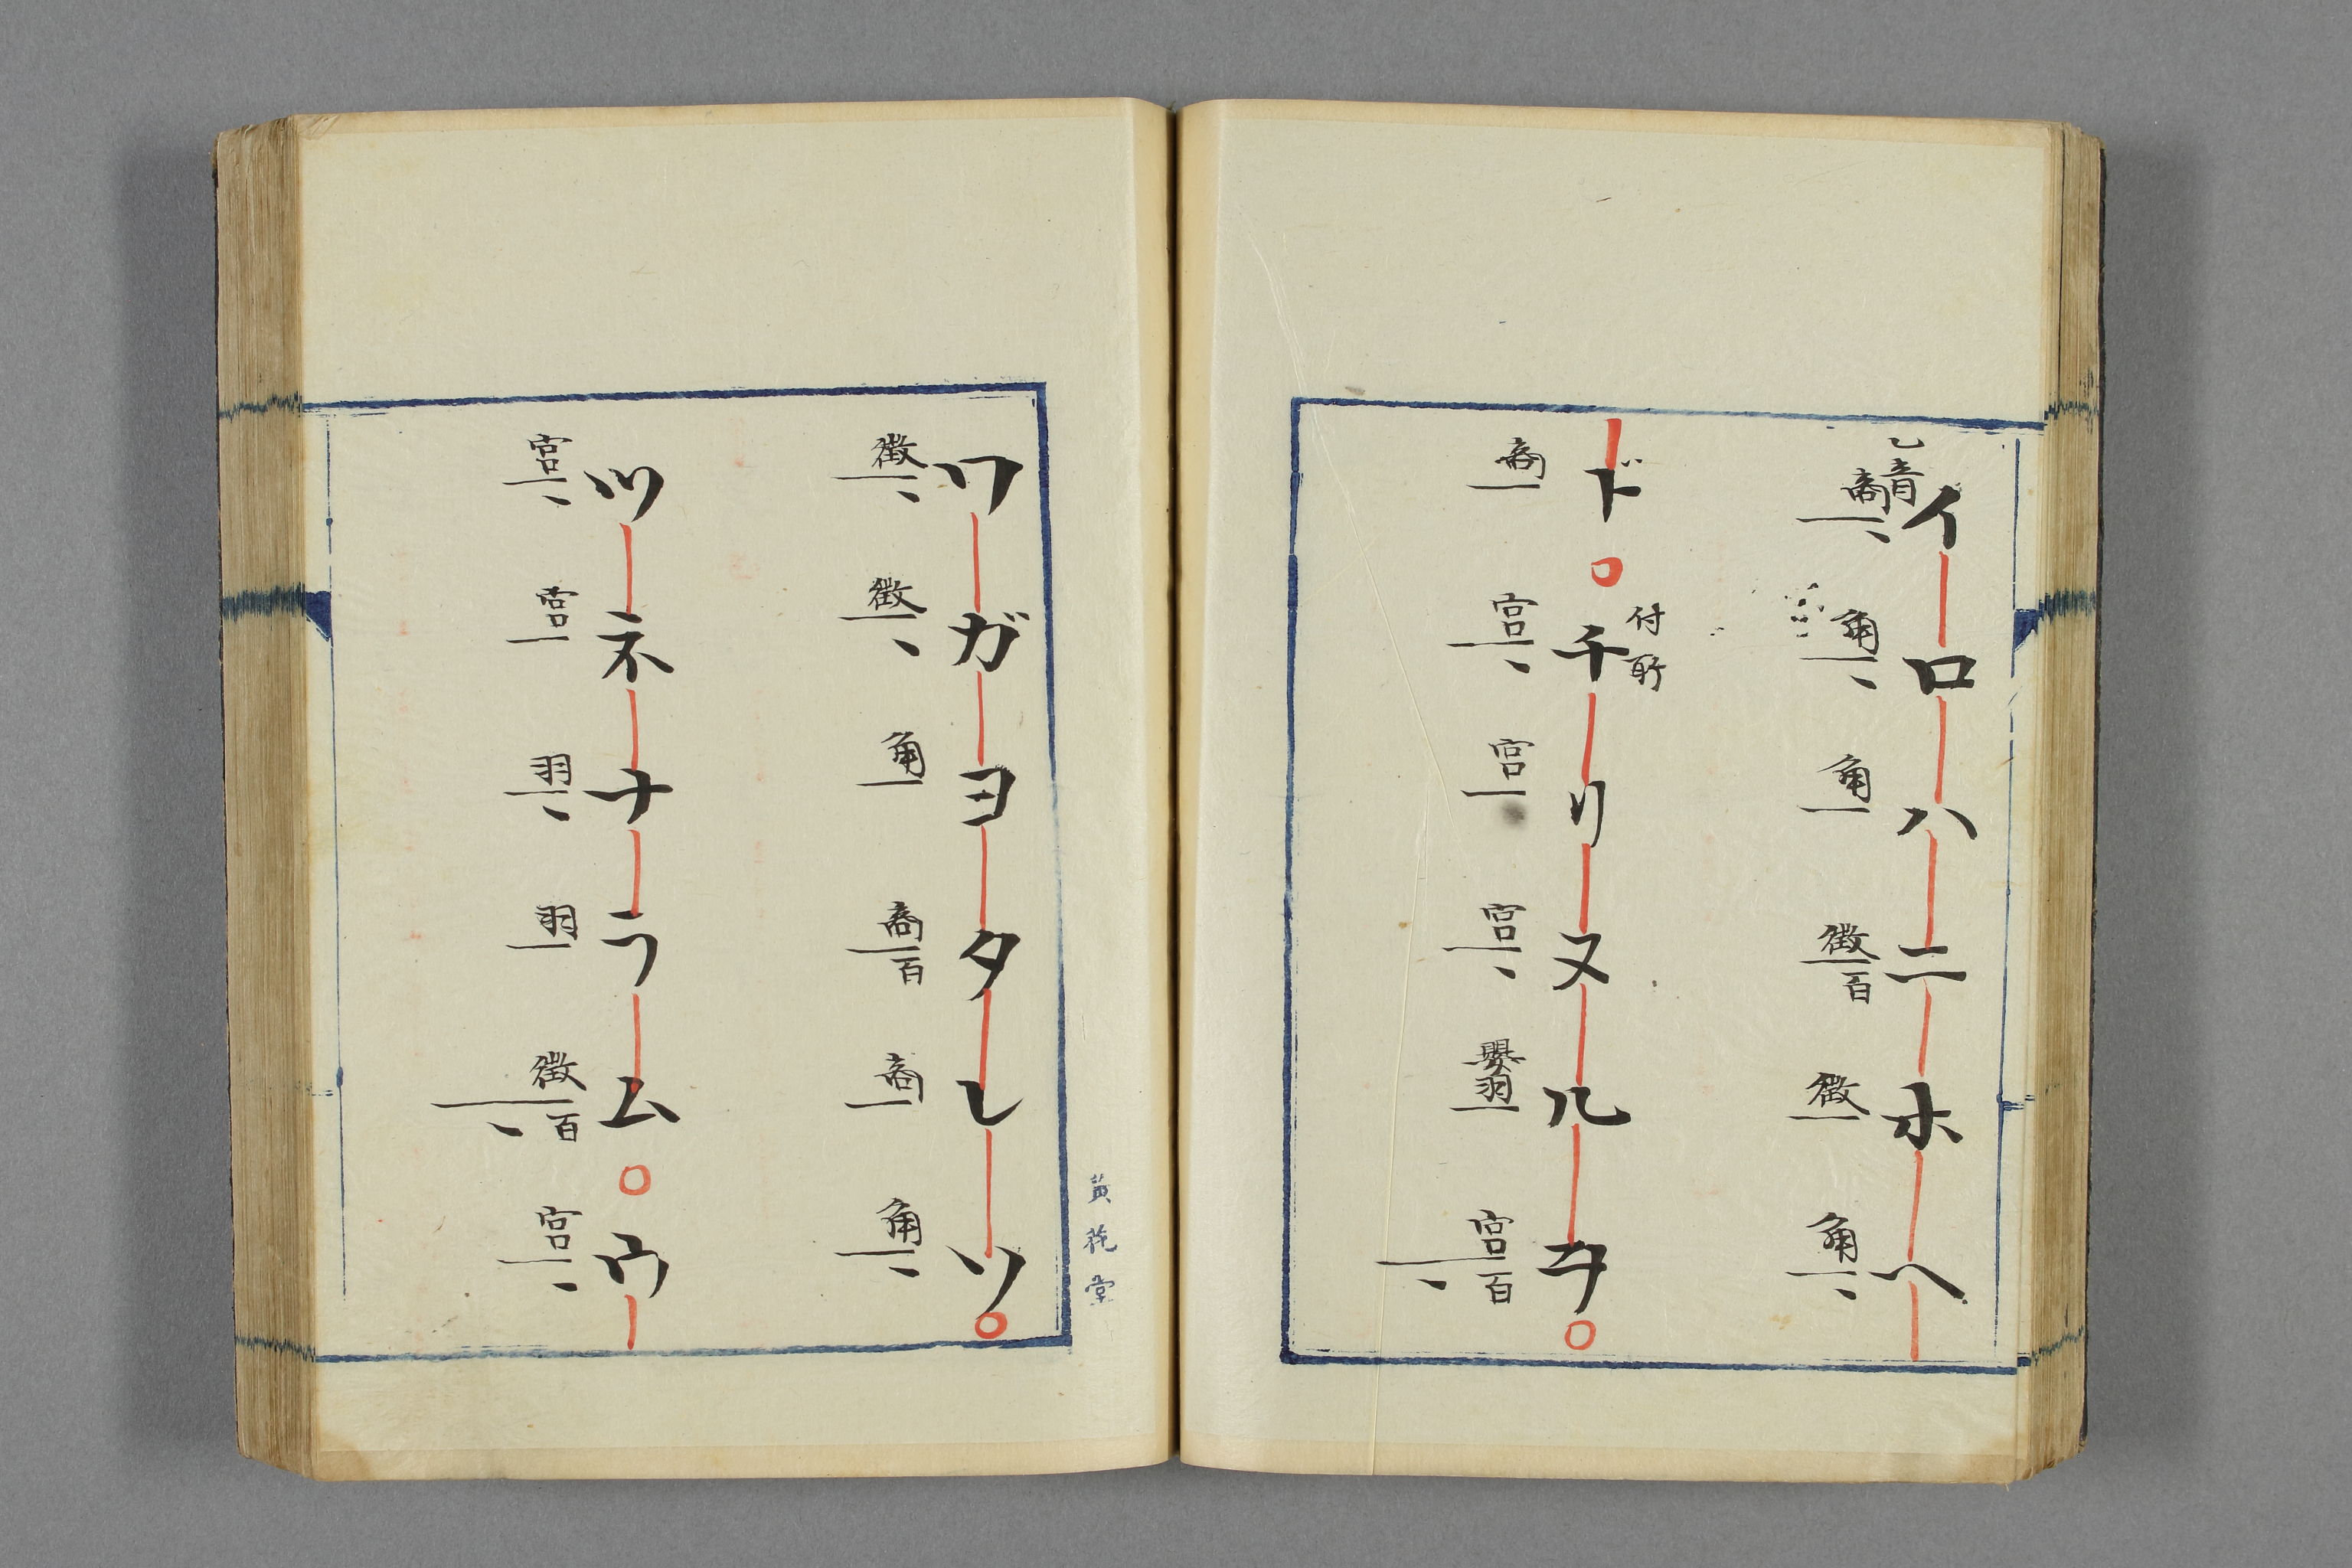 乙音
イロハニホヘ
商、角、角徴百徴角、
付所
ド。チリヌルヲ。
商宮、宮宮、嬰羽宮百、
ワガヨタレソ。
徴、徴、角商百商角、
ツネナラム。ウ
宮、宮羽、羽徴百、宮、
黄葩堂